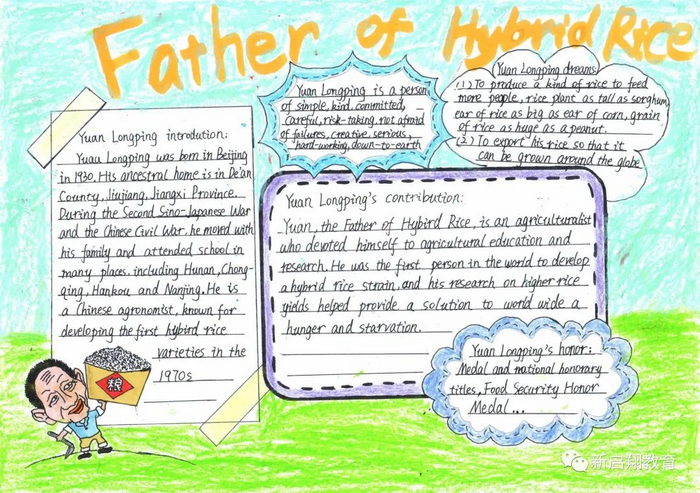 Father of Hybrid Rice
Yuan Longping introdution:
Yuau Longping was born in Beijing
in 1930. His ancestral home is in De'an
County, Jiujiang, Jiangxi Province.
During the Second Sino-Japanese War
and the Chinese Civil War. he moved with
his family and attended school in
many places. including Hunan, Chong-
qing, Hankou and Nanjing. He is
a Chinese agronomist, known for
developing the first hybird rice
varieties in the
1970s
粮
Yuan Longping is a person
of simple, kind, committed,
careful, risk-taking, not afraid
of failures, creative, serious,
hard-working, down-to-earth
Yuan Longping dreams:
(1) To produce a kind of rice to feed
more people, rice plant as tall as sorghum,
ear of rice as big as ear of corn, grain
of rice as huge as a peanut.
(2) To export his rice so that it
can be grown around the globe
Yuan Longping's contribution:
Yuan, the Father of Hybird Rice, is an agriculturalist
who devoted himself to agricultural education and
research. He was the first person in the world to develop
a hybrid rice strain, and his research on higher rice
yields helped provide a solution to world wide a
hunger and starvation.
Yuan Longping's honor:
Medal and national honorary
titles, Food Security Honor
Medal ...
新启翔教育